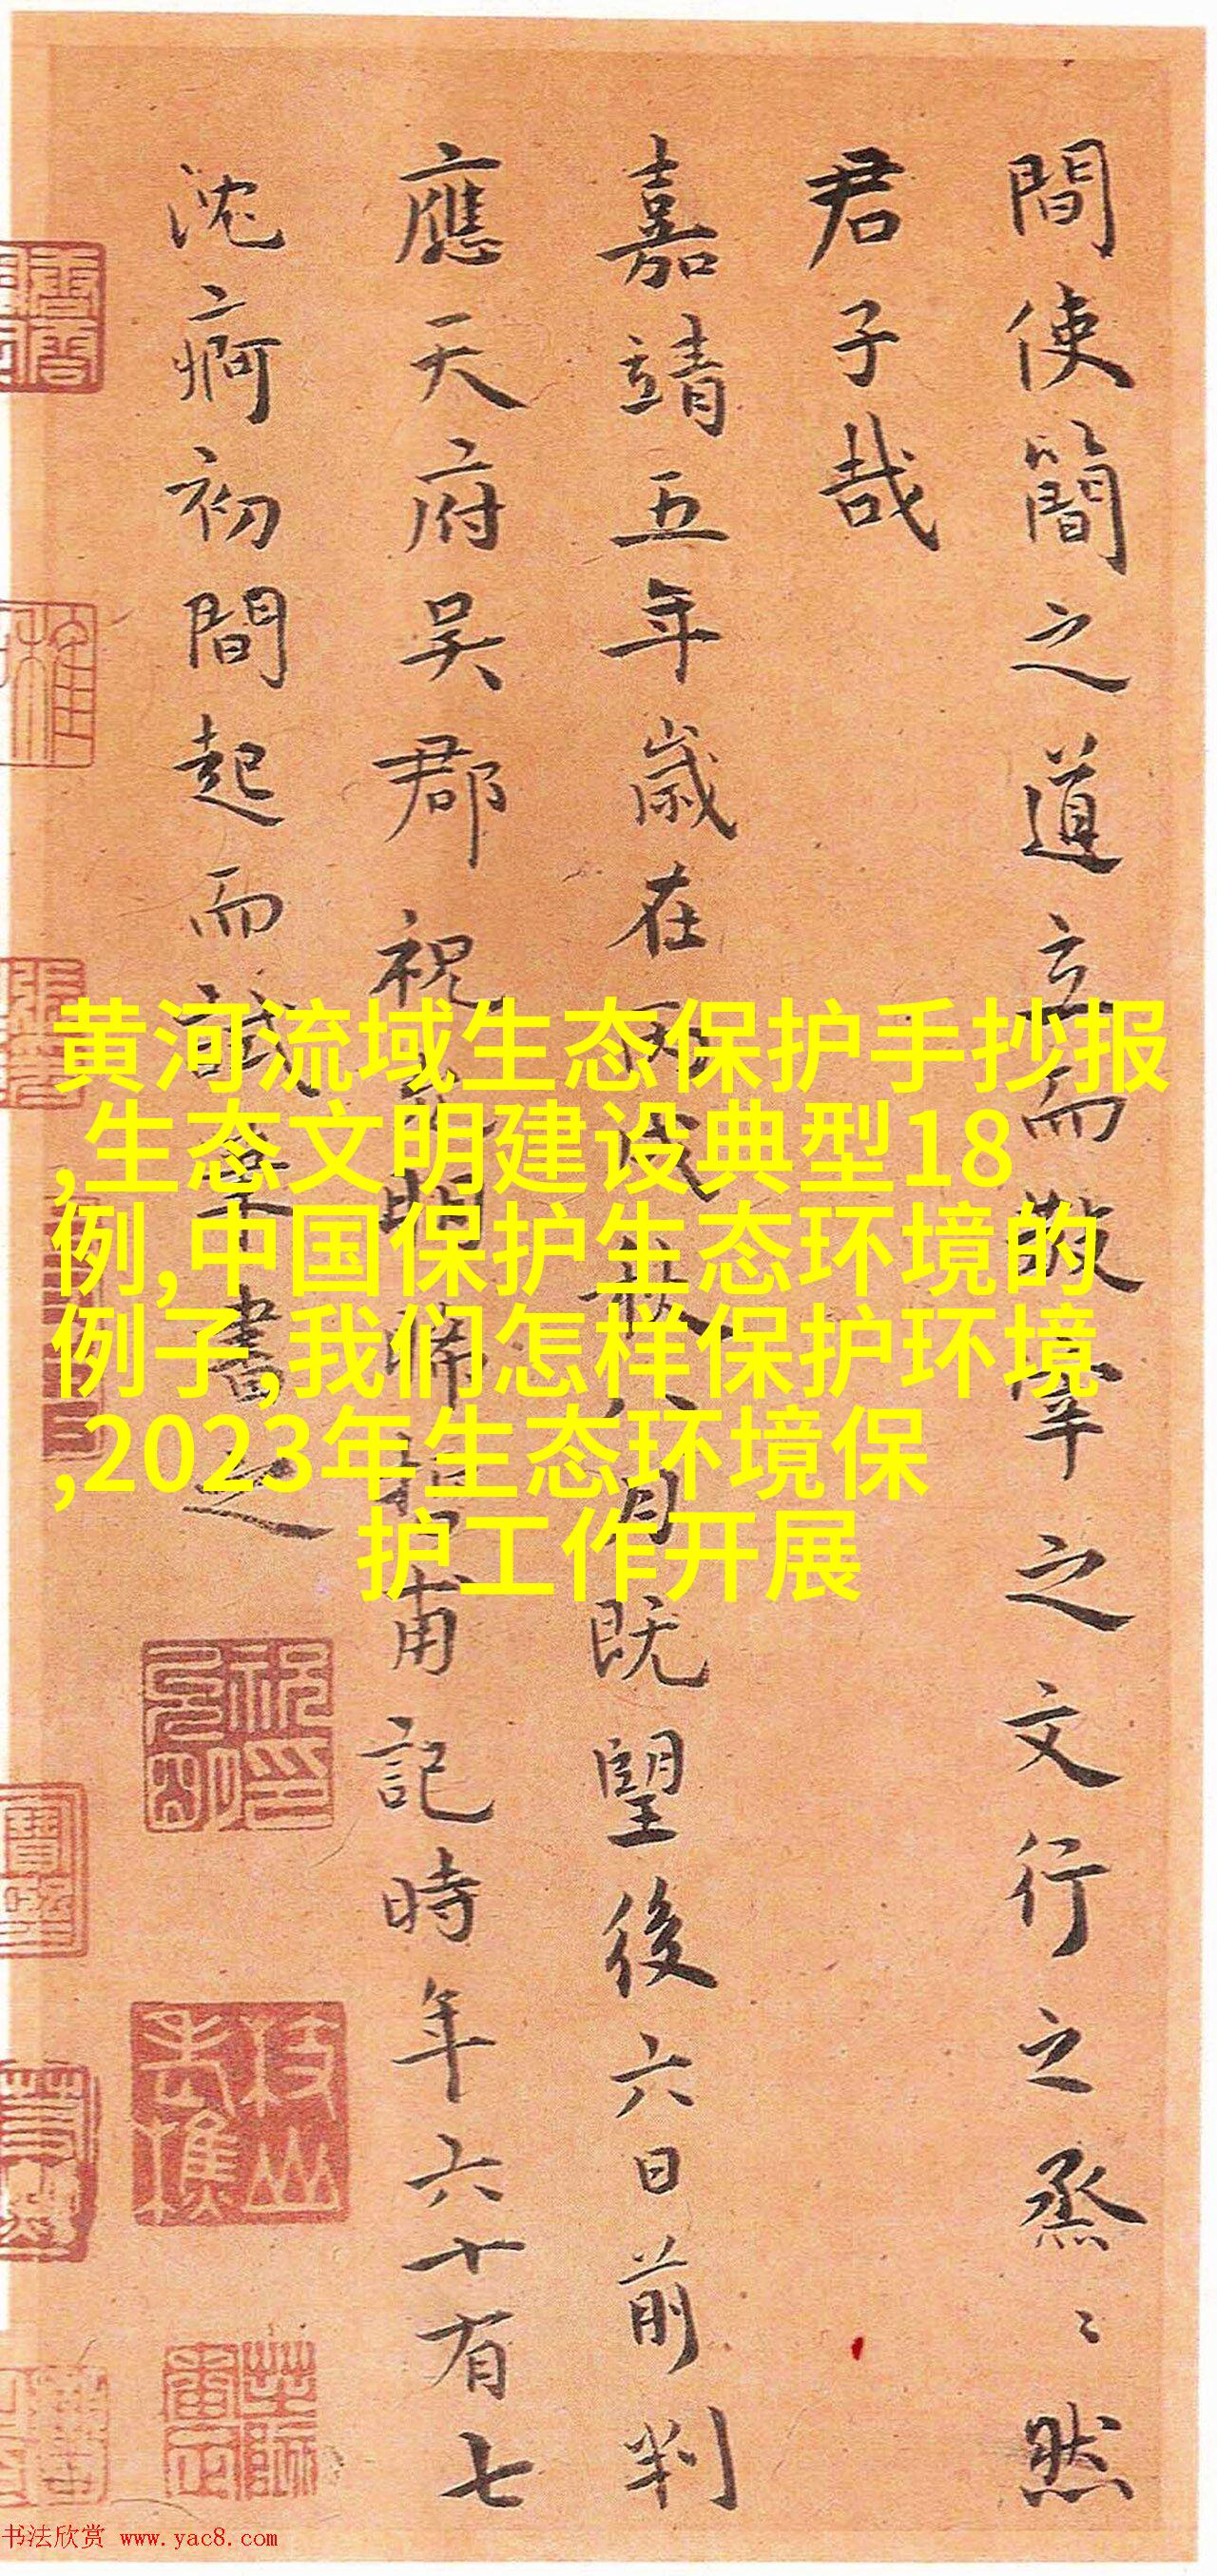 間使簡之道立而敬宰之文行之烝〻然
君子哉
嘉靖五年歲在丙戌秋八月既望後六日前判
應天府吴郡祝允明晞喆甫記時年六十有七
沈痾初間起而試筆書之
黄河流域生态保护手抄报
,生态文明建设典型18
例,中国保护生态环境的
例子,我们怎样保护环境
,2023年生态环境保
护工作开展
祝允明印
枝山老樵
书法欣赏 www.yac8.com